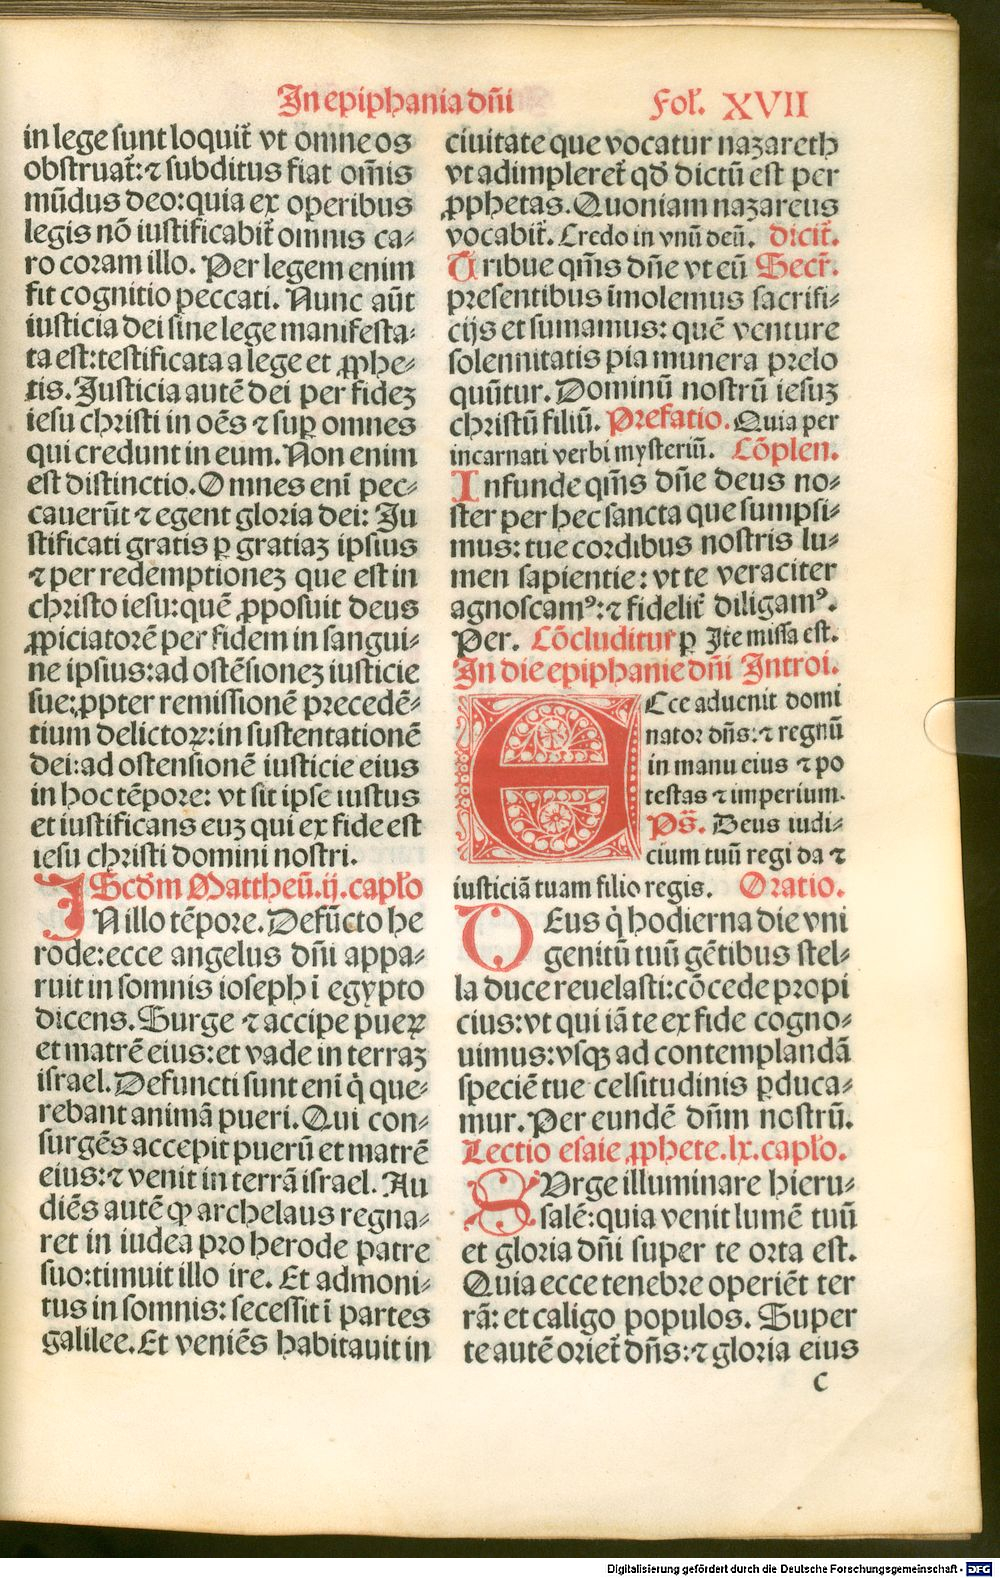 In epiphania dn̄i Fol̛. XVII
in lege sunt loquit̛ vt omne os
obstruat̛: ⁊ subditus fiat om̄is
mūdus deo: quia ex operibus
legis nō iustificabit̛ omnis ca⸗
ro coram illo. Per legem enim
fit cognitio peccati. Nunc aūt
iusticia dei sine lege manifesta⸗
ta est: testificata a lege et ꝓphe⸗
tis. Iusticia autē dei per fidez
iesu christi in oēs ⁊ sup̄ omnes
qui credunt in eum. Non enim
est distinctio. Omnes enī pec⸗
cauerūt ⁊ egent gloria dei: Iu
stificati gratis ꝑ gratiaz ipsius
⁊ per redemptionez que est in
christo iesu: quē ꝓposuit deus
ꝓpiciatorē per fidem in sangui⸗
ne ipsius: ad ostēsionez iusticie
sue: ꝓpter remissionē precedē⸗
tium delictoꝝ: in sustentationē
dei: ad ostensionē iusticie eius
in hoc tēpore: vt sit ipse iustus
et iustificans euz qui ex fide est
iesu christi domini nostri.
Scd̄m Mattheū. ij. capl̛o
IN illo tēpore. Defūcto he
rode: ecce angelus dn̄i appa⸗
ruit in somnis ioseph ī egypto
dicens. Surge ⁊ accipe pueꝝ
et matrē eius: et vade in terraz
israel. Defuncti sunt enī q̇ que⸗
rebant animā pueri. Qui con⸗
surgēs accepit puerū et matrē
eius: ⁊ venit in terrā israel. Au
diēs autē ꝙ archelaus regna⸗
ret in iudea pro herode patre
suo: timuit illo ire. Et admoni⸗
tus in somnis: secessit ī partes
galilee. Et veniēs habitauit in
ciuitate que vocatur nazareth
vt adimpleret̛ qd̄ dictū est per
ꝓphetas. Quoniam nazareus
vocabit̛. Credo in vnū deū. Dicit̛.
Tribue qm̄s dn̄e vt eū Secr̛.
presentibus īmolemus sacrifi⸗
cijs et sumamus: quē venture
solennitatis pia munera prelo
quūtur. Dominū nostrū iesuz
christū filiū. Prefatio. Quia per
incarnati verbi mysteriū. Cōplen.
Infunde qm̄s dn̄e deus no⸗
ster per hec sancta que sumpsi⸗
mus: tue cordibus nostris lu⸗
men sapientie: vt te veraciter
agnoscamꝰ: ⁊ fidelit̛ diligamꝰ.
Per. Cōcluditur ꝑ Ite missa est.
In die epiphanie dn̄i Introi.
Ecce aduenit domi
nator dn̄s: ⁊ regnū
in manu eius ⁊ po
testas ⁊ imperium.
Ps̄. Deus iudi⸗
cium tuū regi da ⁊
iusticiā tuam filio regis. Oratio.
DEus q̇ hodierna die vni
genitū tuū gētibus stel⸗
la duce reuelasti: cōcede propi
cius: vt qui iā te ex fide cogno⸗
uimus: vsqꝫ ad contemplandā
speciē tue celsitudinis ꝑduca⸗
mur. Per eundē dn̄m nostrū.
Lectio esaie ꝓphete. lx. capl̛o.
SUrge illuminare hieru⸗
salē: quia venit lumē tuū
et gloria dn̄i super te orta est.
Quia ecce tenebre operiēt ter
rā: et caligo populos. Super
te autē oriet̛ dn̄s: ⁊ gloria eius
c
Digitalisierung gefördert durch die Deutsche Forschungsgemeinschaft - DFG